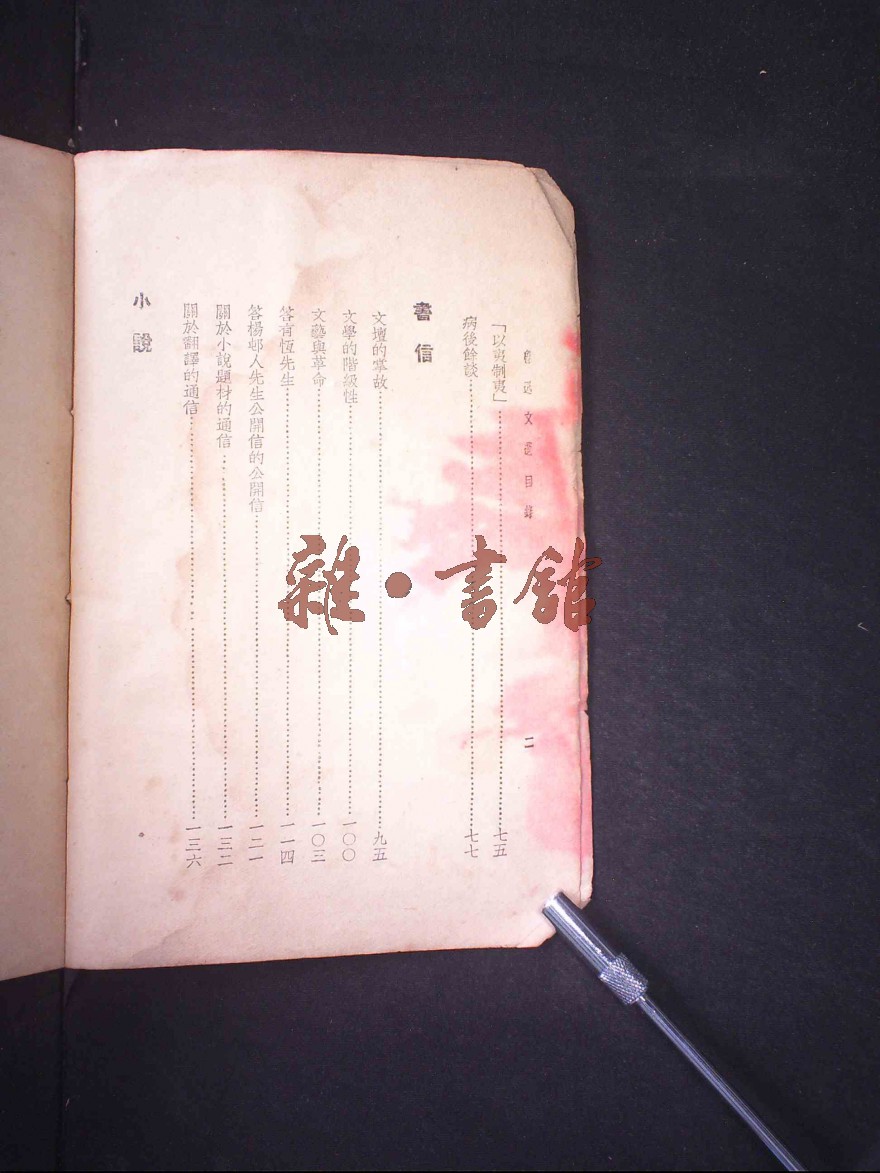 魯迅文選目錄
二
「以夷制夷」……七五
病後餘談……七七
書信
文壇的掌故……九五
文學的階級性……一〇〇
文藝與革命……一〇三
答有恆先生……一一四
答楊邨人先生公開信的公開信……一二一
關於小說題材的通信……一三二
關於翻譯的通信……一三六
小說
雜·書館